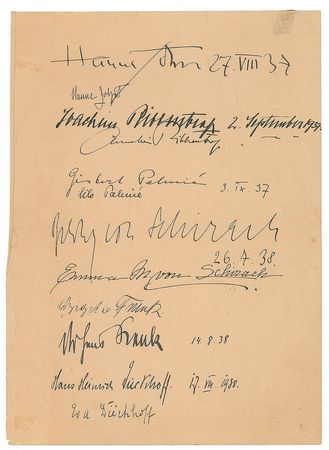 Hanns Johst 27. VIII 37
Hanne Johst
Joachim Ribbentrop 2. September 1937.
Gisbert Palmié 3. IX. 37
Palmié
von Schirach
26. 7. 38.
Emma M. von Schirach
Brigitte Frank
Dr Hans Frank 14. 8. 38
Hans Heinrich Dieckhoff. 17. VIII. 1938.
Eva Dieckhoff.